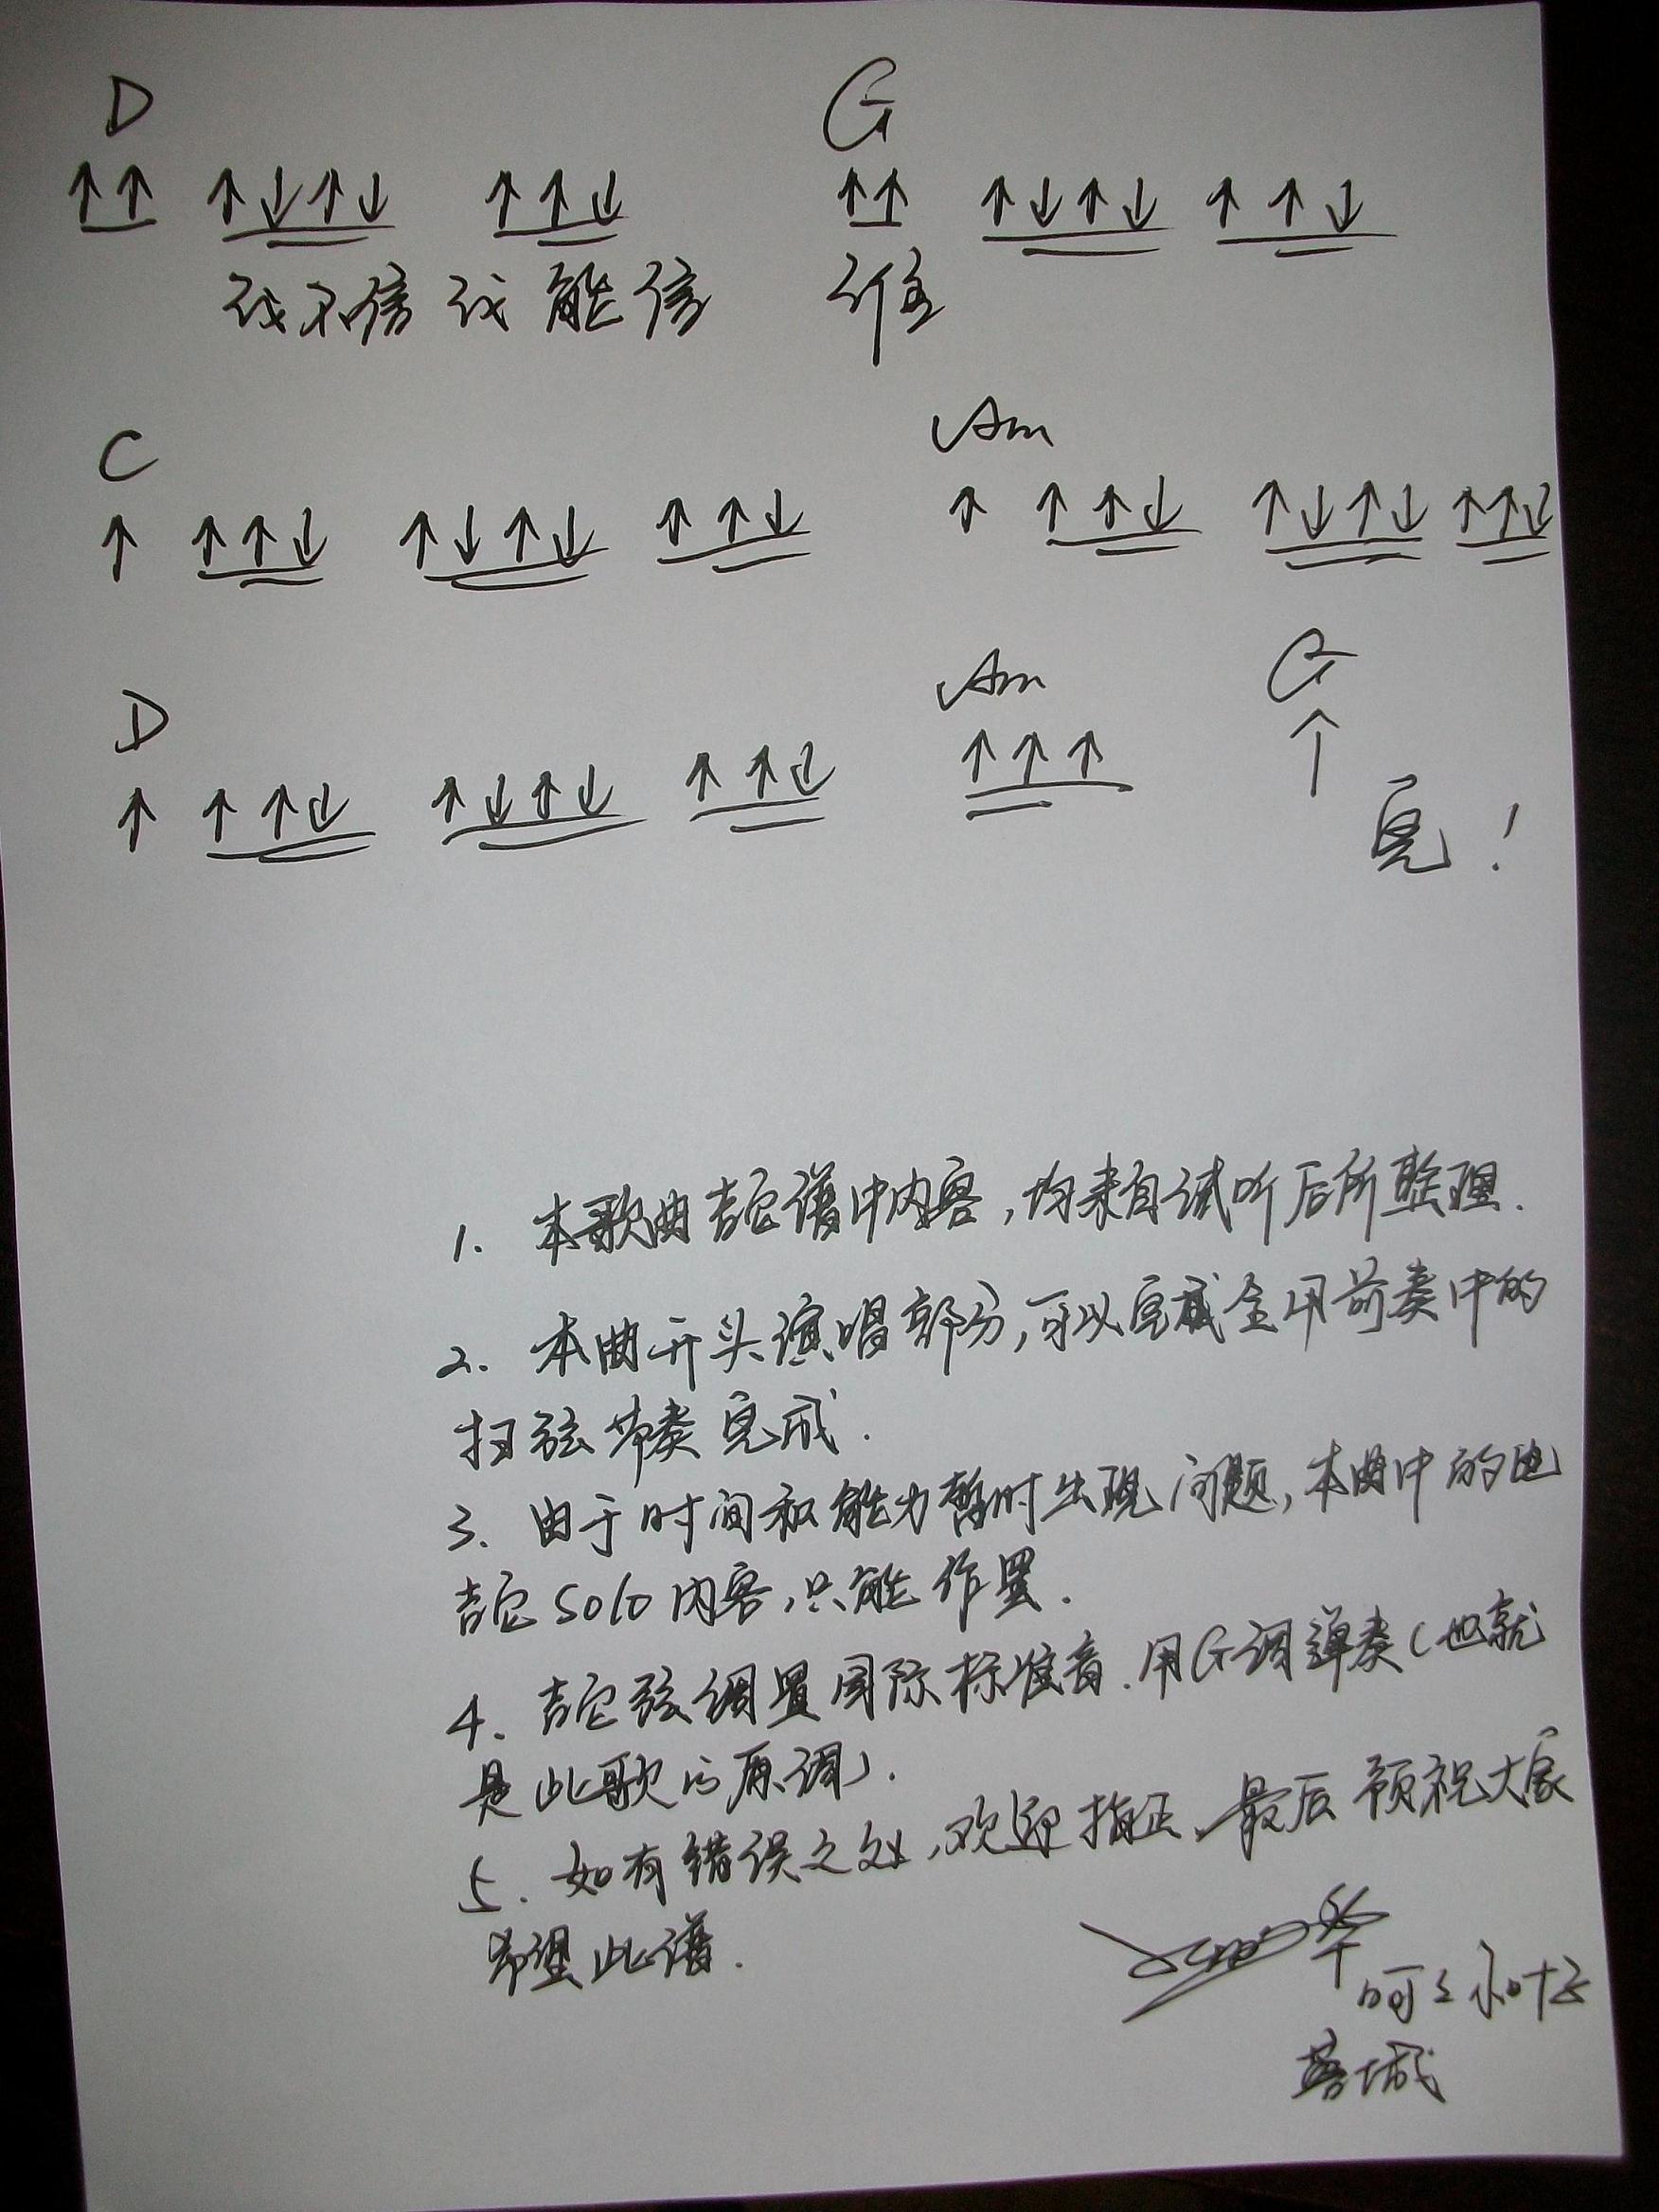 D G
↑↑ ↑↓↑↓ ↑↑↓ ↑↑ ↑↓↑↓ ↑↑↓
我不信我能信 谁
C Am
↑ ↑↑↓ ↑↓↑↓ ↑↑↓ ↑ ↑↑↓ ↑↓↑↓ ↑↑↓
D Am G
↑ ↑↑↓ ↑↓↑↓ ↑↑↓ ↑↑↑ ↑
完!
1. 本歌曲吉它谱中内容,均来自试听后所整理.
2. 本曲开头演唱部分,可以完成全用前奏中的
扫弦节奏完成.
3. 由于时间和能力暂时出现问题,本曲中的电
吉它Solo内容,只能作罢.
4. 吉它弦调置国际标准音.用G调弹奏(也就
是此歌的原调).
5. 如有错误之处,欢迎指正,最后预祝大家
希望此谱.
华
蓉城